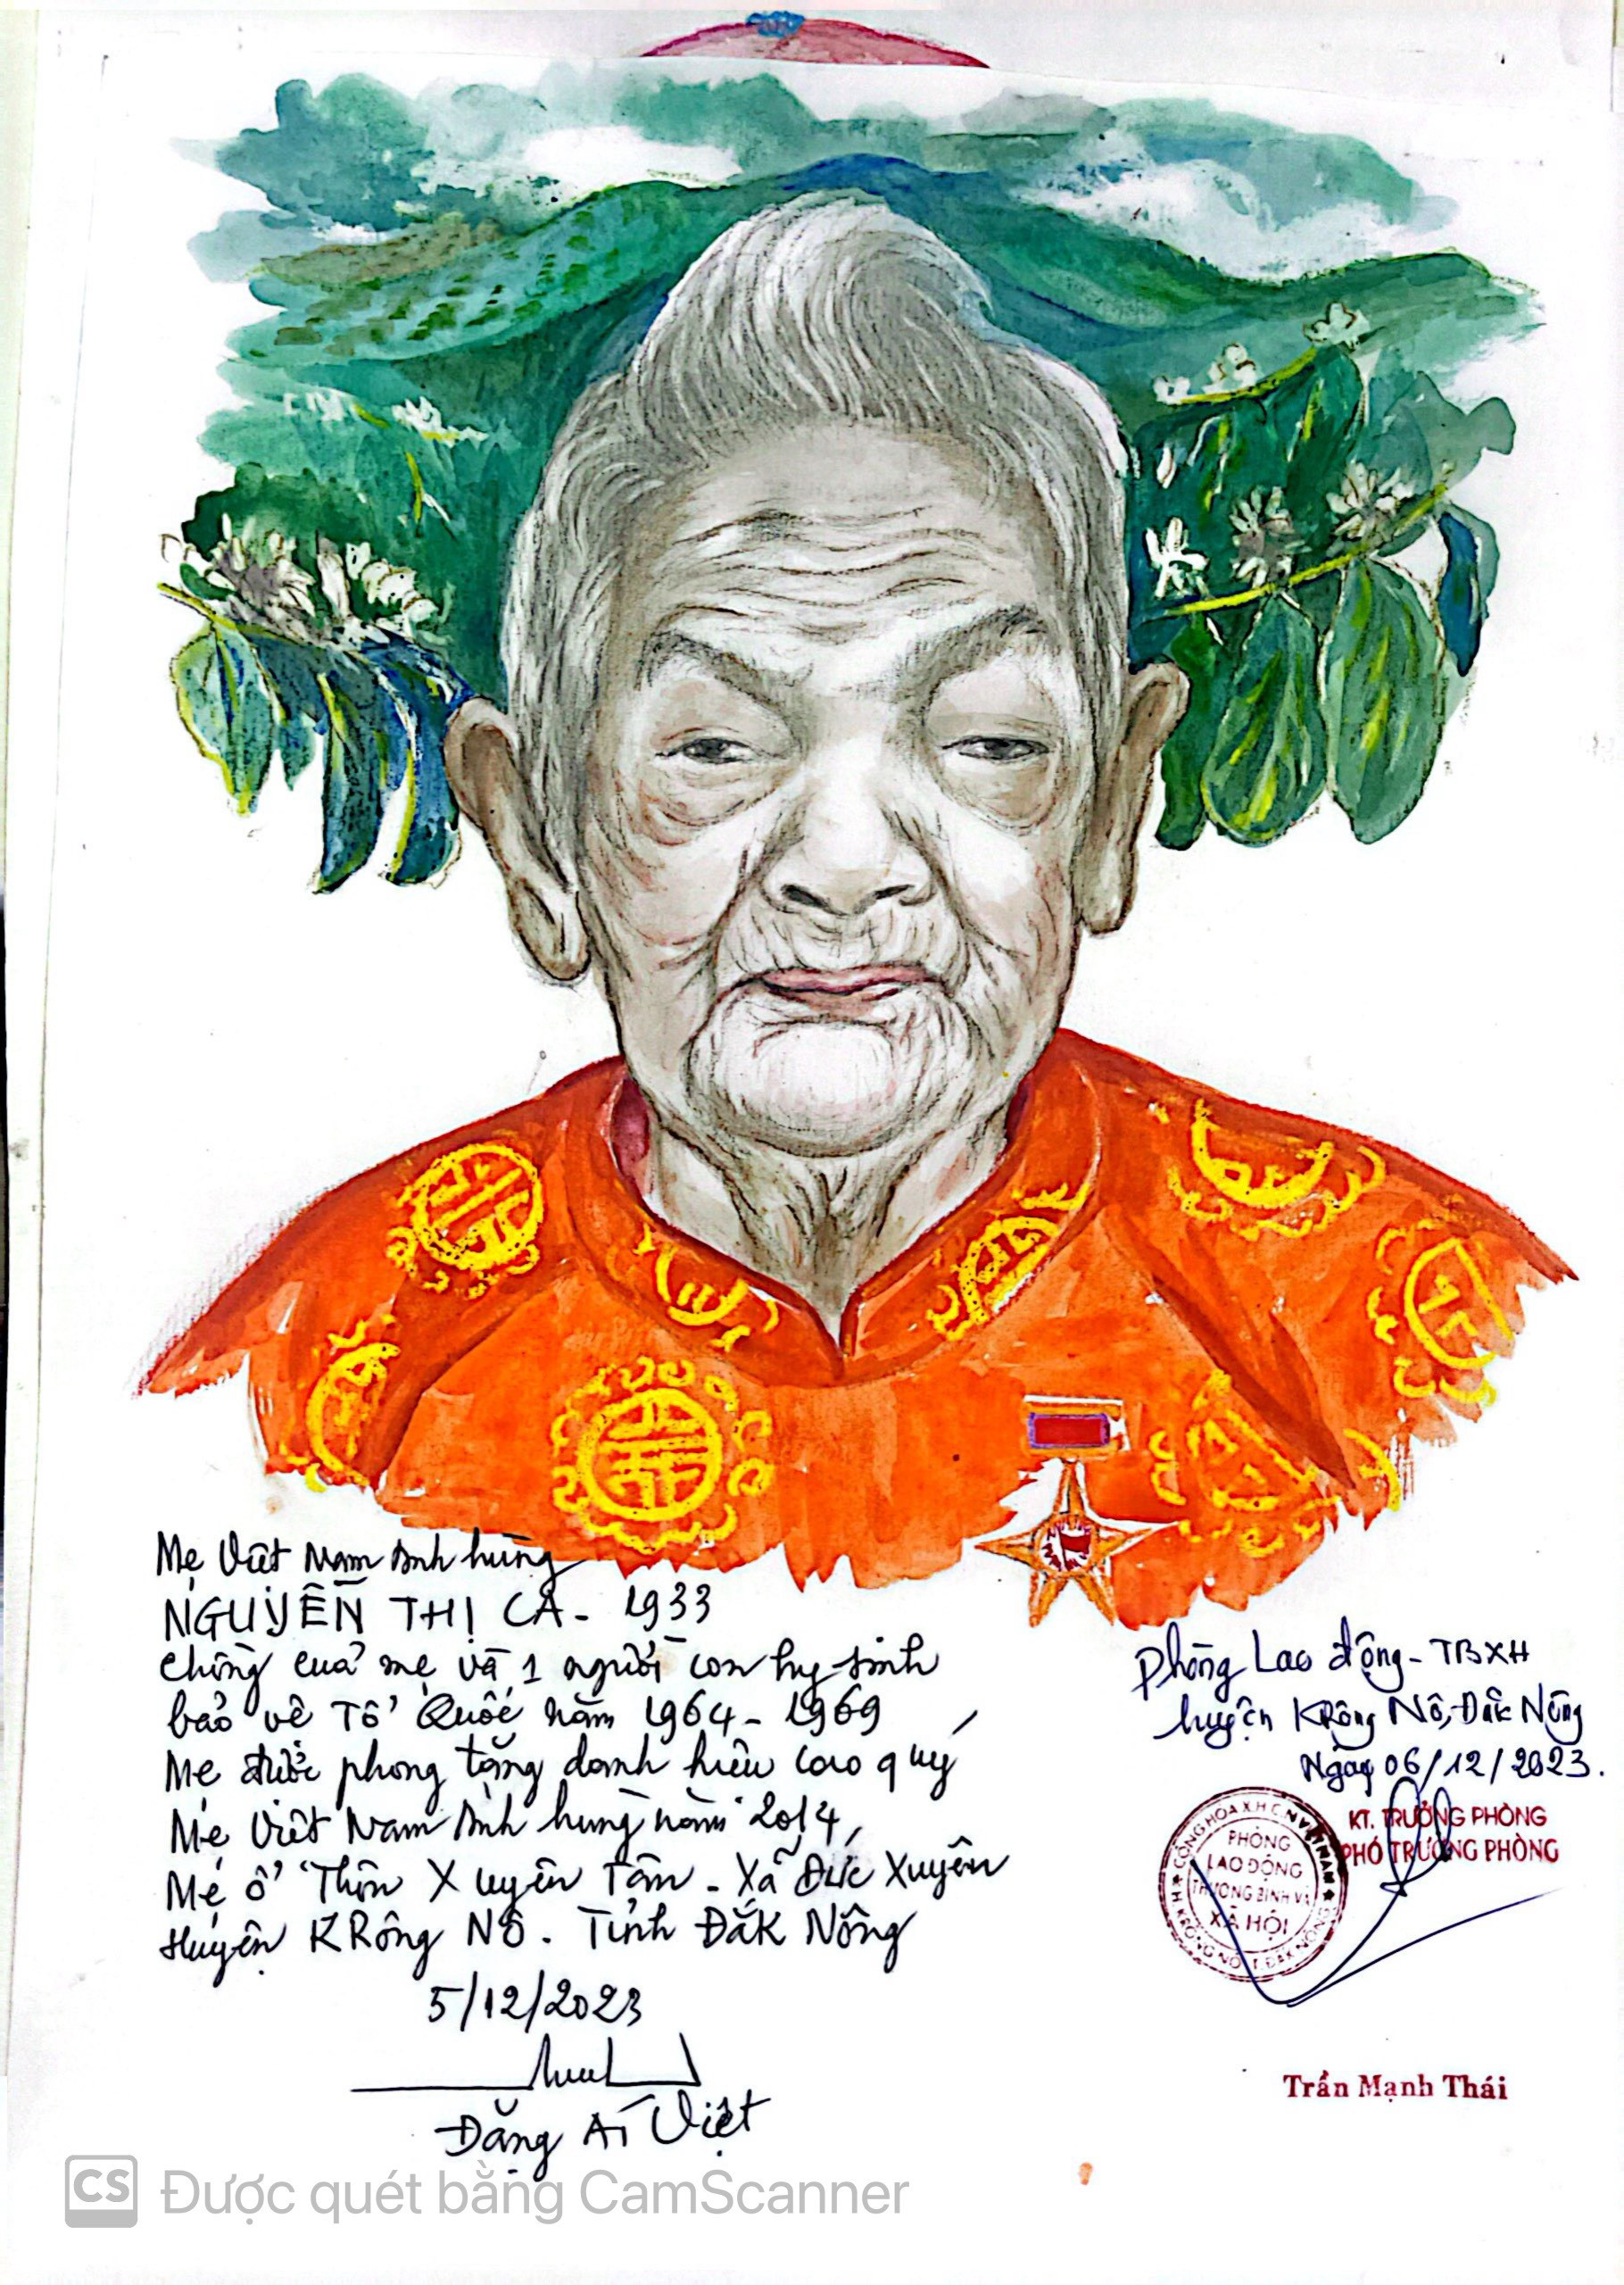 Mẹ Việt Nam Anh hùng
NGUYỄN THỊ CA - 1933
Chồng của mẹ và 1 người con hy sinh
bảo vệ Tổ Quốc năm 1964 - 1969
Mẹ được phong tặng danh hiệu cao quý
Mẹ Việt Nam Anh hùng năm 2014,
Mẹ ở Thôn Xuyên Tân - Xã Đức Xuyên
Huyện KRông Nô - Tỉnh Đắk Nông
5/12/2023
Đặng Ái Việt
Phòng Lao động - TBXH
huyện KRông Nô, Đắk Nông
Ngày 06/12/2023.
KT. TRƯỞNG PHÒNG
PHÓ TRƯỞNG PHÒNG
CỘNG HÒA X.H.C.N VIỆT NAM
PHÒNG
LAO ĐỘNG
THƯƠNG BINH VÀ
XÃ HỘI
H. KRÔNG NÔ T. ĐẮK NÔNG
Trần Mạnh Thái
CS Được quét bằng CamScanner